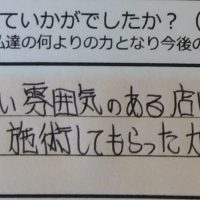 ていかがでしたか？（
私達の何よりの力となり今後の
い雰囲気のある店
施術してもらった